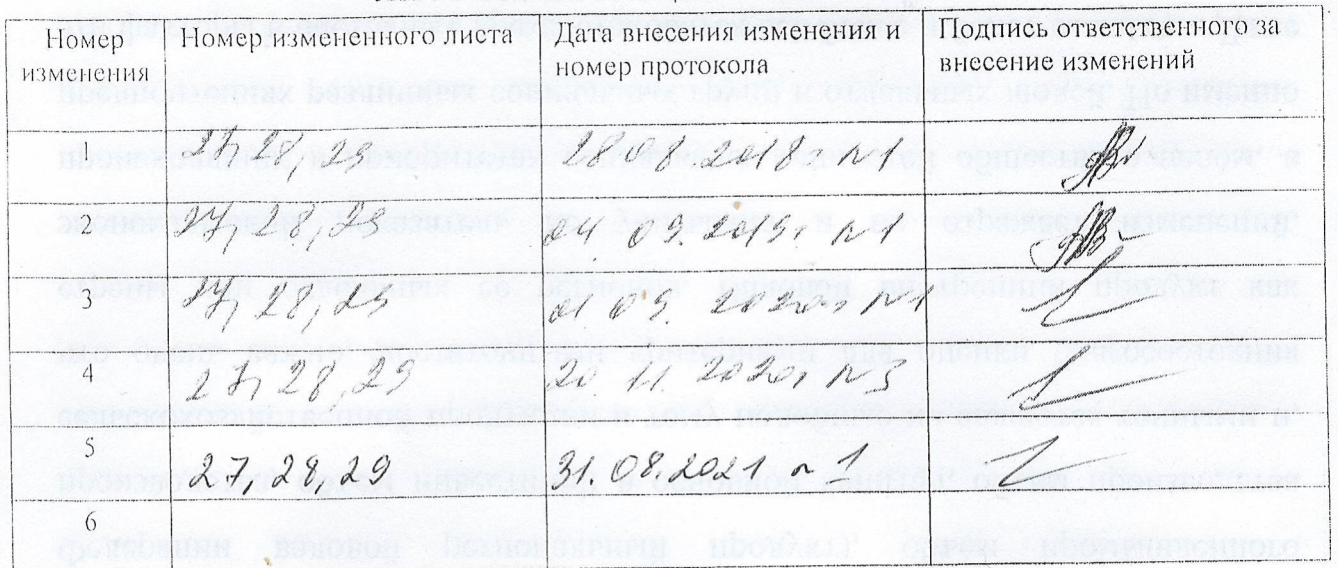 Номер изменения Номер измененного листа Дата внесения изменения и номер протокола Подпись ответственного за внесение изменений
1 27, 28, 29 28.08.2018. №1
2 27, 28, 29 24 09. 2019. №1
3 27, 28, 29 21 09. 2020. №1
4 27, 28, 29 20 11. 2020, №3
5 27, 28, 29 31. 08. 2021 №1
6